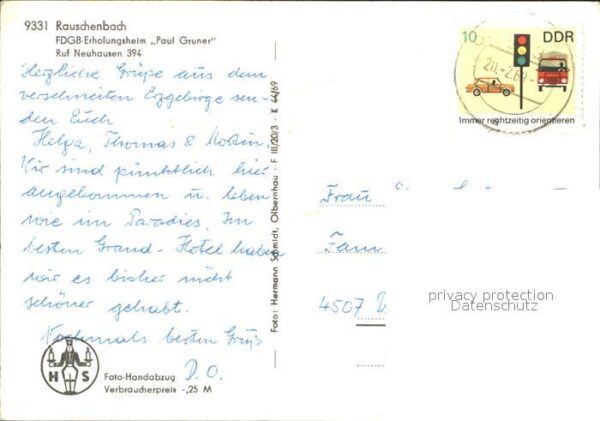 9331 Rauschenbach
FDGB-Erholungsheim „Paul Gruner"
Ruf Neuhausen 394
Herzliche Grüße aus dem
verschneiten Erzgebirge sen-
den Euch
Helga, Thomas &
Wir sind pünktlich hier
angekommen u. leben
wie im Paradies. Im
besten Grand-Hotel haben
wir es bisher nicht
schöner gehabt.
Nochmals besten Gruß
D. O.
H S
Foto-Handabzug
Verbraucherpreis -,25 M
Foto: Hermann Schmidt, Olbernhau · F III/20/3 · K 44/69
10 DDR
20.-2.69
Immer rechtzeitig orientieren
Frau
Fam
4507
privacy protection
Datenschutz